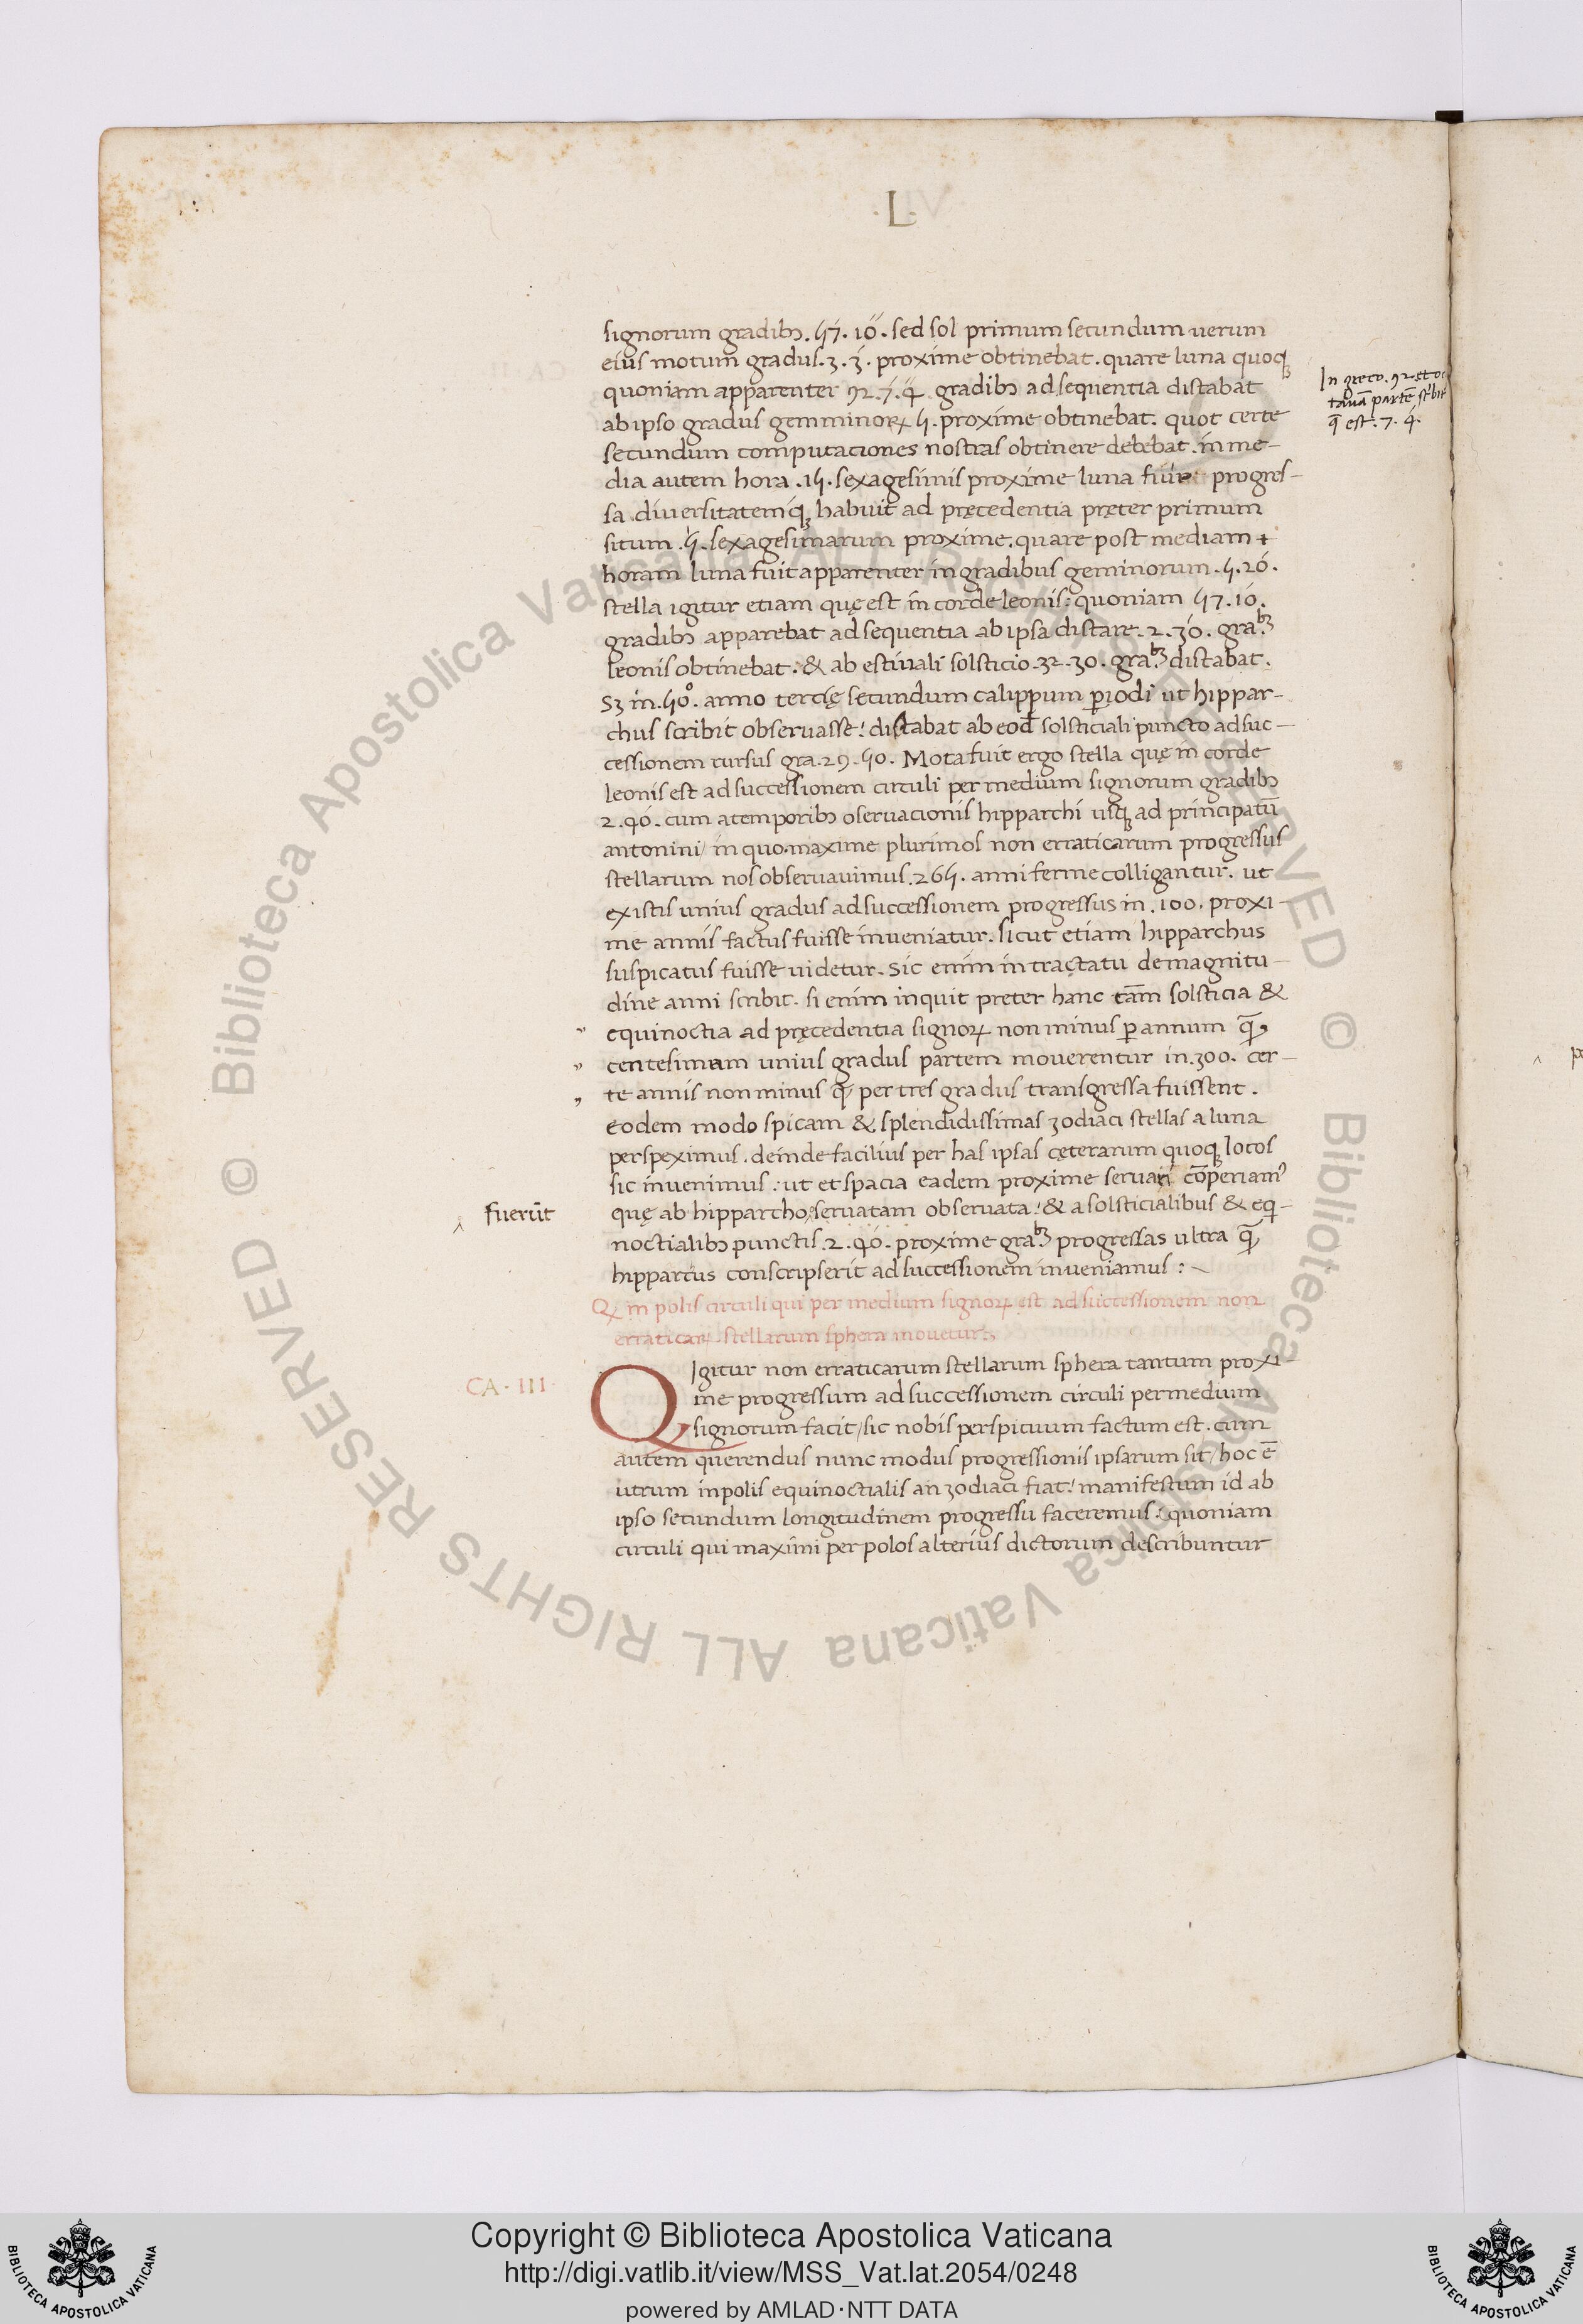 ·L·
signorum gradibꝫ. 57. 10. sed sol primum secundum uerum
eius motum gradus. 3. 3. proxime obtinebat. quare luna quoqꝫ
quoniam apparenter 92. 7. 4 gradibꝫ ad sequentia distabat
ab ipso gradus gemminoꝝ 5. proxime obtinebat. quot certe
secundum computaciones nostras obtinere debebat. in me-
dia autem hora .15. sexagesimis proxime luna progres-
sa diuersitatemqꝫ habuit ad pręcedentia pręter primum
situm .5. sexagesimarum proxime. quare post mediam +
horam luna fuit apparenter in gradibus geminorum. 5. 20.
stella igitur etiam quę est in corde leonis: quoniam 57. 10.
gradibꝫ apparebat ad sequentia ab ipsa distare. 2. 30. graᵇꝫ
leonis obtinebat. & ab estiuali solsticio. 32. 30. gra.ᵇꝫ distabat.
Sꝫ in. 50°. anno tercię secundum calippum ꝑiodi ut hippar-
chus scribit obseruasse! distabat ab eod̄ solsticiali puncto ad suc-
cessionem cursus gra. 29. 50. Mota fuit ergo stella quę in corde
leonis est ad successionem circuli per medium signorum gradibꝫ
2. 40. cum a temporibꝫ oseruacionis hipparchi usqꝫ ad principatū
antonini/ in quo maxime plurimos non erraticarum progressus
stellarum nos obseruauimus. 265. anni ferme colligantur. ut
ex istis unius gradus ad successionem progressus in. 100. proxi-
me annis factus fuisse inueniatur. sicut etiam hipparchus
suspicatus fuisse uidetur. Sic enim in tractatu de magnitu-
dine anni scribit. si enim inquit preter hanc cām solsticia &
equinoctia ad pręcedentia signoꝝ non minus ꝑ annum q̄ꝫ
centesimam unius gradus partem mouerentur in. 300. cer-
te annis non minus q̄ꝫ per tres gradus transgressa fuissent.
eodem modo spicam & splendidissimas zodiaci stellas a luna
perspeximus. deinde facilius per has ipsas cęterarum quoqꝫ locos
sic inuenimus: ut et spacia eadem proxime seruari cōperiamꝰ
fuerūt
quę ab hipparcho seruatam obseruata! & a solsticialibus & eqi-
noctialibꝫ punctis. 2. 40. proxime graᵇꝫ progressas ultra q̄ꝫ
hipparcus conscripserit ad successionem inueniamus:
Qꝫ in polis circuli qui per medium signoꝝ est ad successionem non
erraticaꝝ stellarum sphera mouetur.
CA · III ·
Q Igitur non erraticarum stellarum sphera tantum proxi-
me progressum ad successionem circuli per medium
signorum facit/ sic nobis perspicuum factum est. cum
autem querendus nunc modus progressionis ipsarum sit/ hoc ē
utrum in polis equinoctialis an zodiaci fiat! manifestum id ab
ipso secundum longitudinem progressu faceremus: quoniam
circuli qui maximi per polos alterius dictorum describuntur
In greco. 92. et oc
tauā partē
q̄ est. 7. 4.
Copyright © Biblioteca Apostolica Vaticana
http://digi.vatlib.it/view/MSS_Vat.lat.2054/0248
powered by AMLAD·NTT DATA
BIBLIOTECA APOSTOLICA VATICANA
BIBLIOTECA APOSTOLICA VATICANA
© Biblioteca Apostolica Vaticana ALL RIGHTS RESERVED © Biblioteca Apostolica Vaticana ALL RIGHTS RESERVED